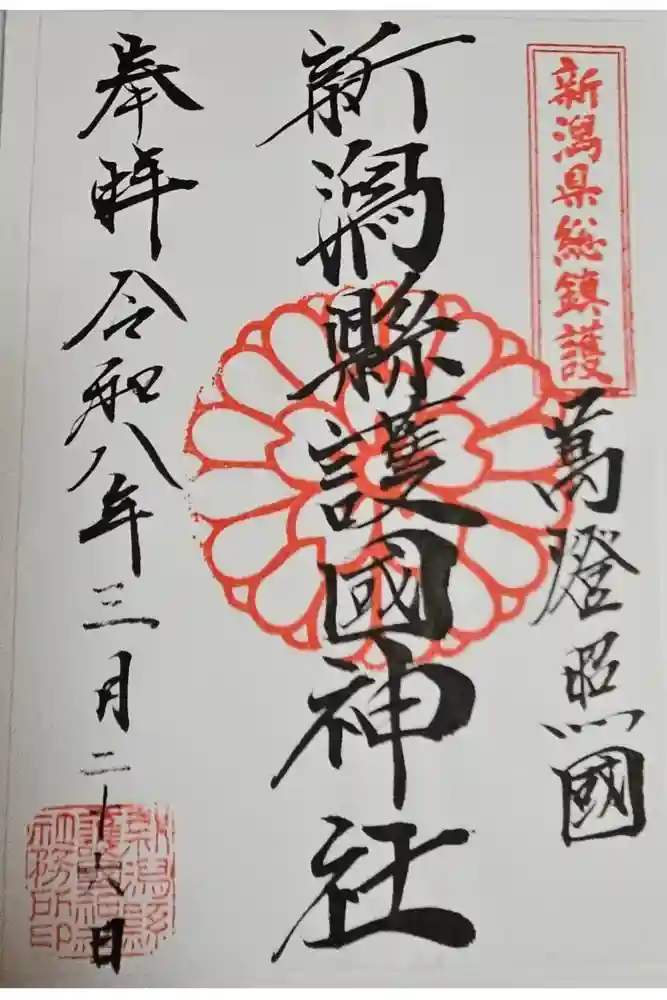 新潟県総鎮護
萬燈照國
新潟縣護國神社
奉拝 令和八年三月二十六日
新潟縣
護國神社
社務所印